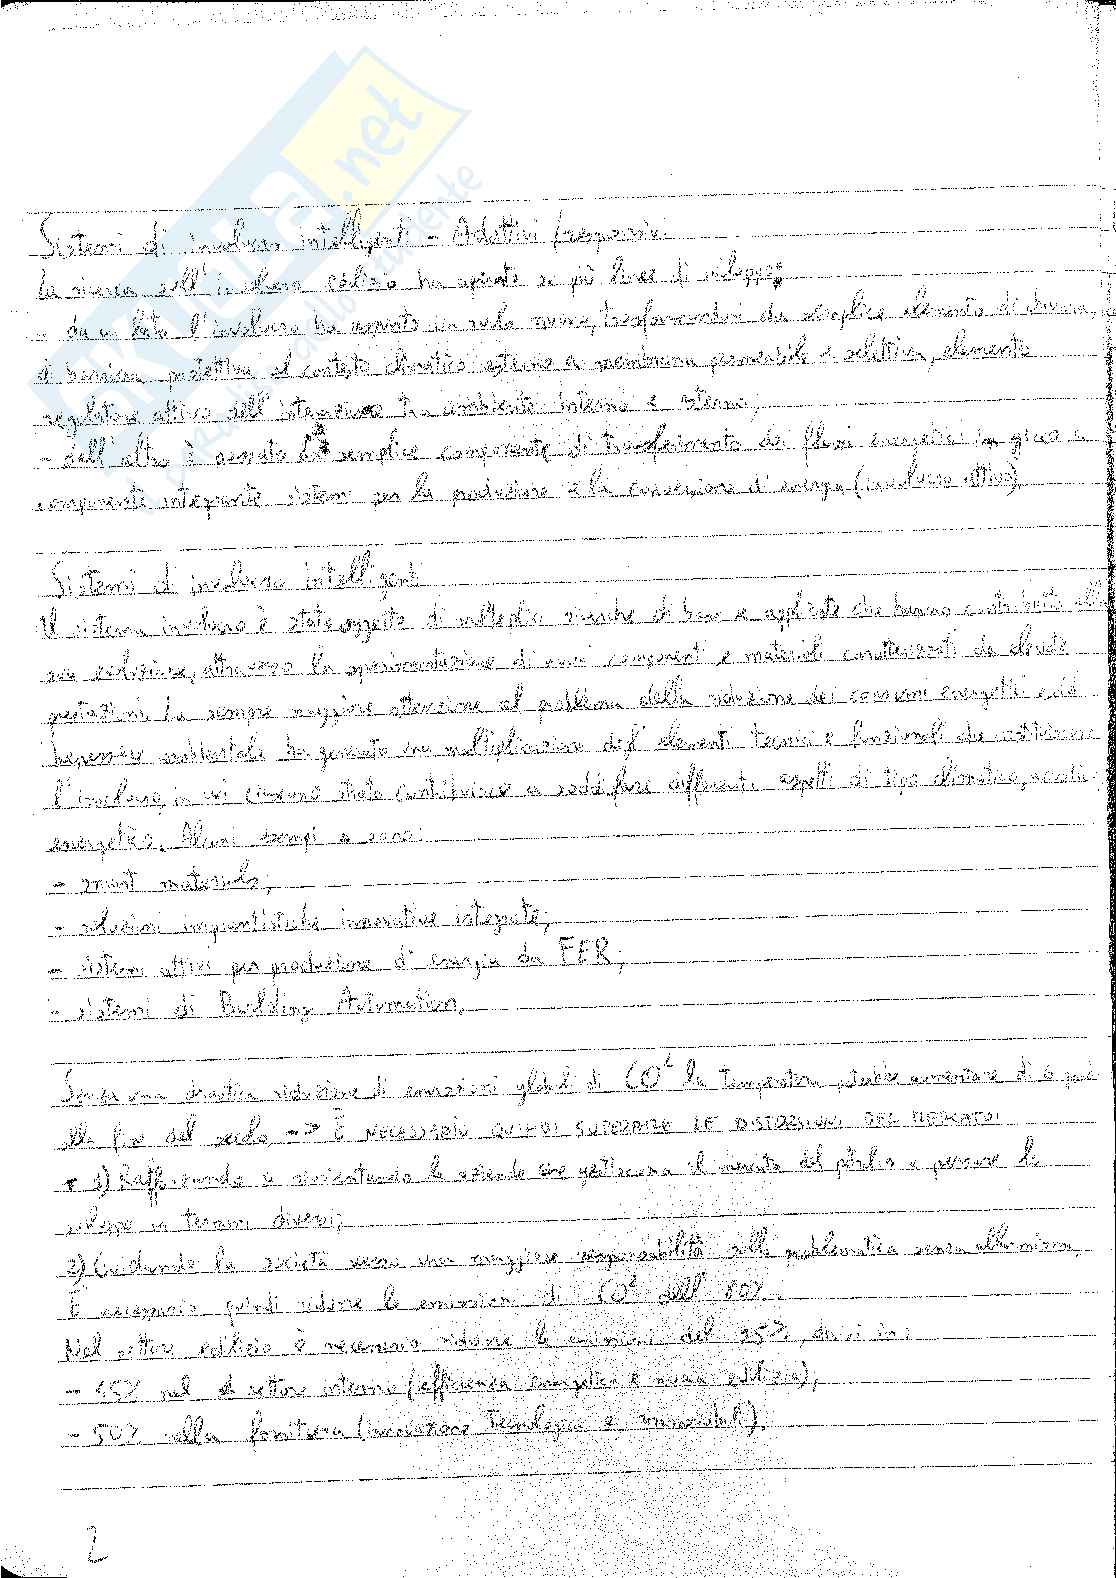 Sistemi di involucro intelligenti - Adattivi/responsivi
La ricerca sull'involucro edilizio ha operato su più linee di sviluppo:
- da un lato l'involucro ha operato un ruolo nuovo, trasformandosi da semplice elemento di chiusura,
di barriera protettiva al contesto climatico esterno a membrana permeabile e selettiva, elemento
regolatore attivo dell'interazione tra ambiente interno e esterno;
- dall'altro è passato da semplice componente di trasferimento dei flussi energetici in gioco a
componente integrante sistemi per la produzione e la conversione di energia (involucro attivo).
Sistemi di involucro intelligenti
Il sistema involucro è stato oggetto di molteplici ricerche di base e applicate che hanno contribuito alla
sua evoluzione, attraverso la sperimentazione di nuovi componenti e materiali caratterizzati da elevate
prestazioni. La sempre maggiore attenzione al problema della riduzione dei consumi energetici e del
benessere ambientale ha generato una moltiplicazione degli elementi tecnici e funzionali che costituiscono
l'involucro, in cui ciascuno strato contribuisce a soddisfare differenti aspetti di tipo climatico, acustico
energetico. Alcuni esempi a sono:
- smart materials;
- soluzioni impiantistiche innovative integrate;
- sistemi attivi per produzione di energia da FER;
- sistemi di Building Automation.
Senza una drastica riduzione di emissioni globali di CO² la temperatura dovrebbe aumentare di 6 gradi
alla fine del secolo -> È NECESSARIO QUINDI SUPERARE LE DISTORSIONI DEL MERCATO:
1) Rafforzando e orientando le aziende che gestiscono il mercato del petrolio a pensare lo
sviluppo in termini diversi;
2) Guidando la società verso una maggiore responsabilità sulla problematica senza allarmismi
È necessario quindi ridurre le emissioni di CO² dell'80%.
Nel settore edilizio è necessario ridurre le emissioni del 95%, divisi in:
- 45% nel settore interno (efficienza energetica e nuova edilizia);
- 50% sulla fornitura (innovazione tecnologica e
2
SKUOLA.net